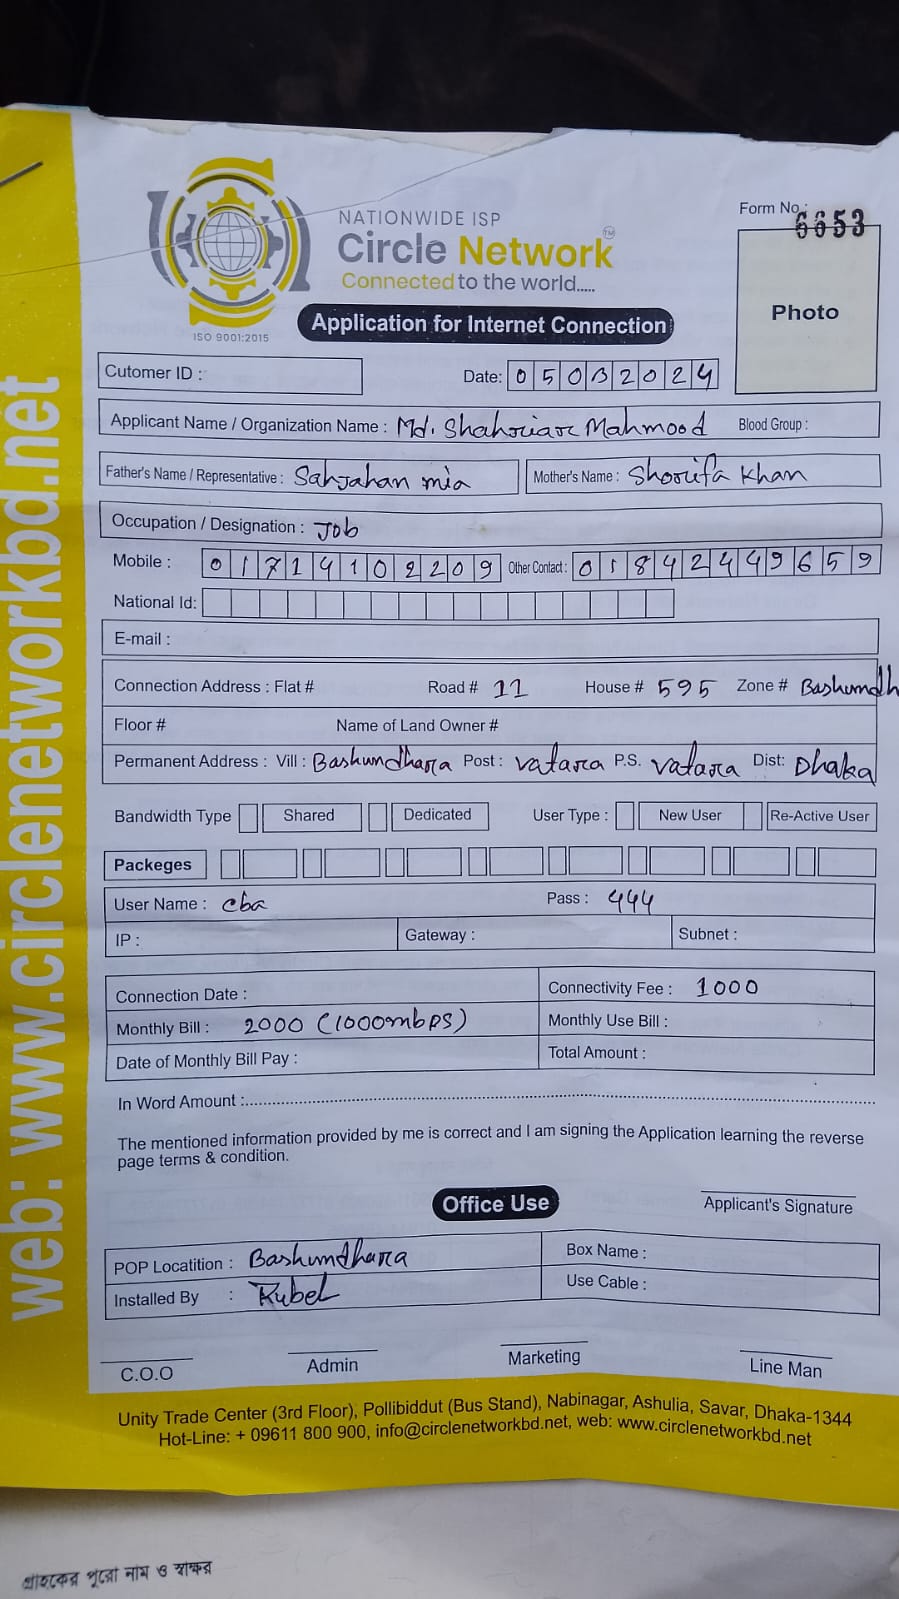 web: www.circlenetworkbd.net
NATIONWIDE ISP
Circle Network TM
Connected to the world.....
ISO 9001:2015
Form No.: 6653
Photo
Application for Internet Connection
Cutomer ID :
Date: 05032024
Applicant Name / Organization Name : Md. Shahriar Mahmood Blood Group :
Father's Name / Representative : Sahjahan mia Mother's Name : Shorifa Khan
Occupation / Designation : Job
Mobile : 01714102209 Other Contact : 01842449659
National Id:
E-mail :
Connection Address : Flat # Road # 11 House # 595 Zone # Bashundh
Floor # Name of Land Owner #
Permanent Address : Vill : Bashundhara Post : vatara P.S. vatara Dist: Dhaka
Bandwidth Type Shared Dedicated User Type : New User Re-Active User
Packeges
User Name : cba Pass : 444
IP : Gateway : Subnet :
Connection Date : Connectivity Fee : 1000
Monthly Bill : 2000 (1000mbps) Monthly Use Bill :
Date of Monthly Bill Pay : Total Amount :
In Word Amount :
The mentioned information provided by me is correct and I am signing the Application learning the reverse
page terms & condition.
Applicant's Signature
Office Use
POP Locatition : Bashundhara Box Name :
Installed By : Rubel Use Cable :
C.O.O Admin Marketing Line Man
Unity Trade Center (3rd Floor), Pollibiddut (Bus Stand), Nabinagar, Ashulia, Savar, Dhaka-1344
Hot-Line: + 09611 800 900, info@circlenetworkbd.net, web: www.circlenetworkbd.net
গ্রাহকের পুরো নাম ও স্বাক্ষর